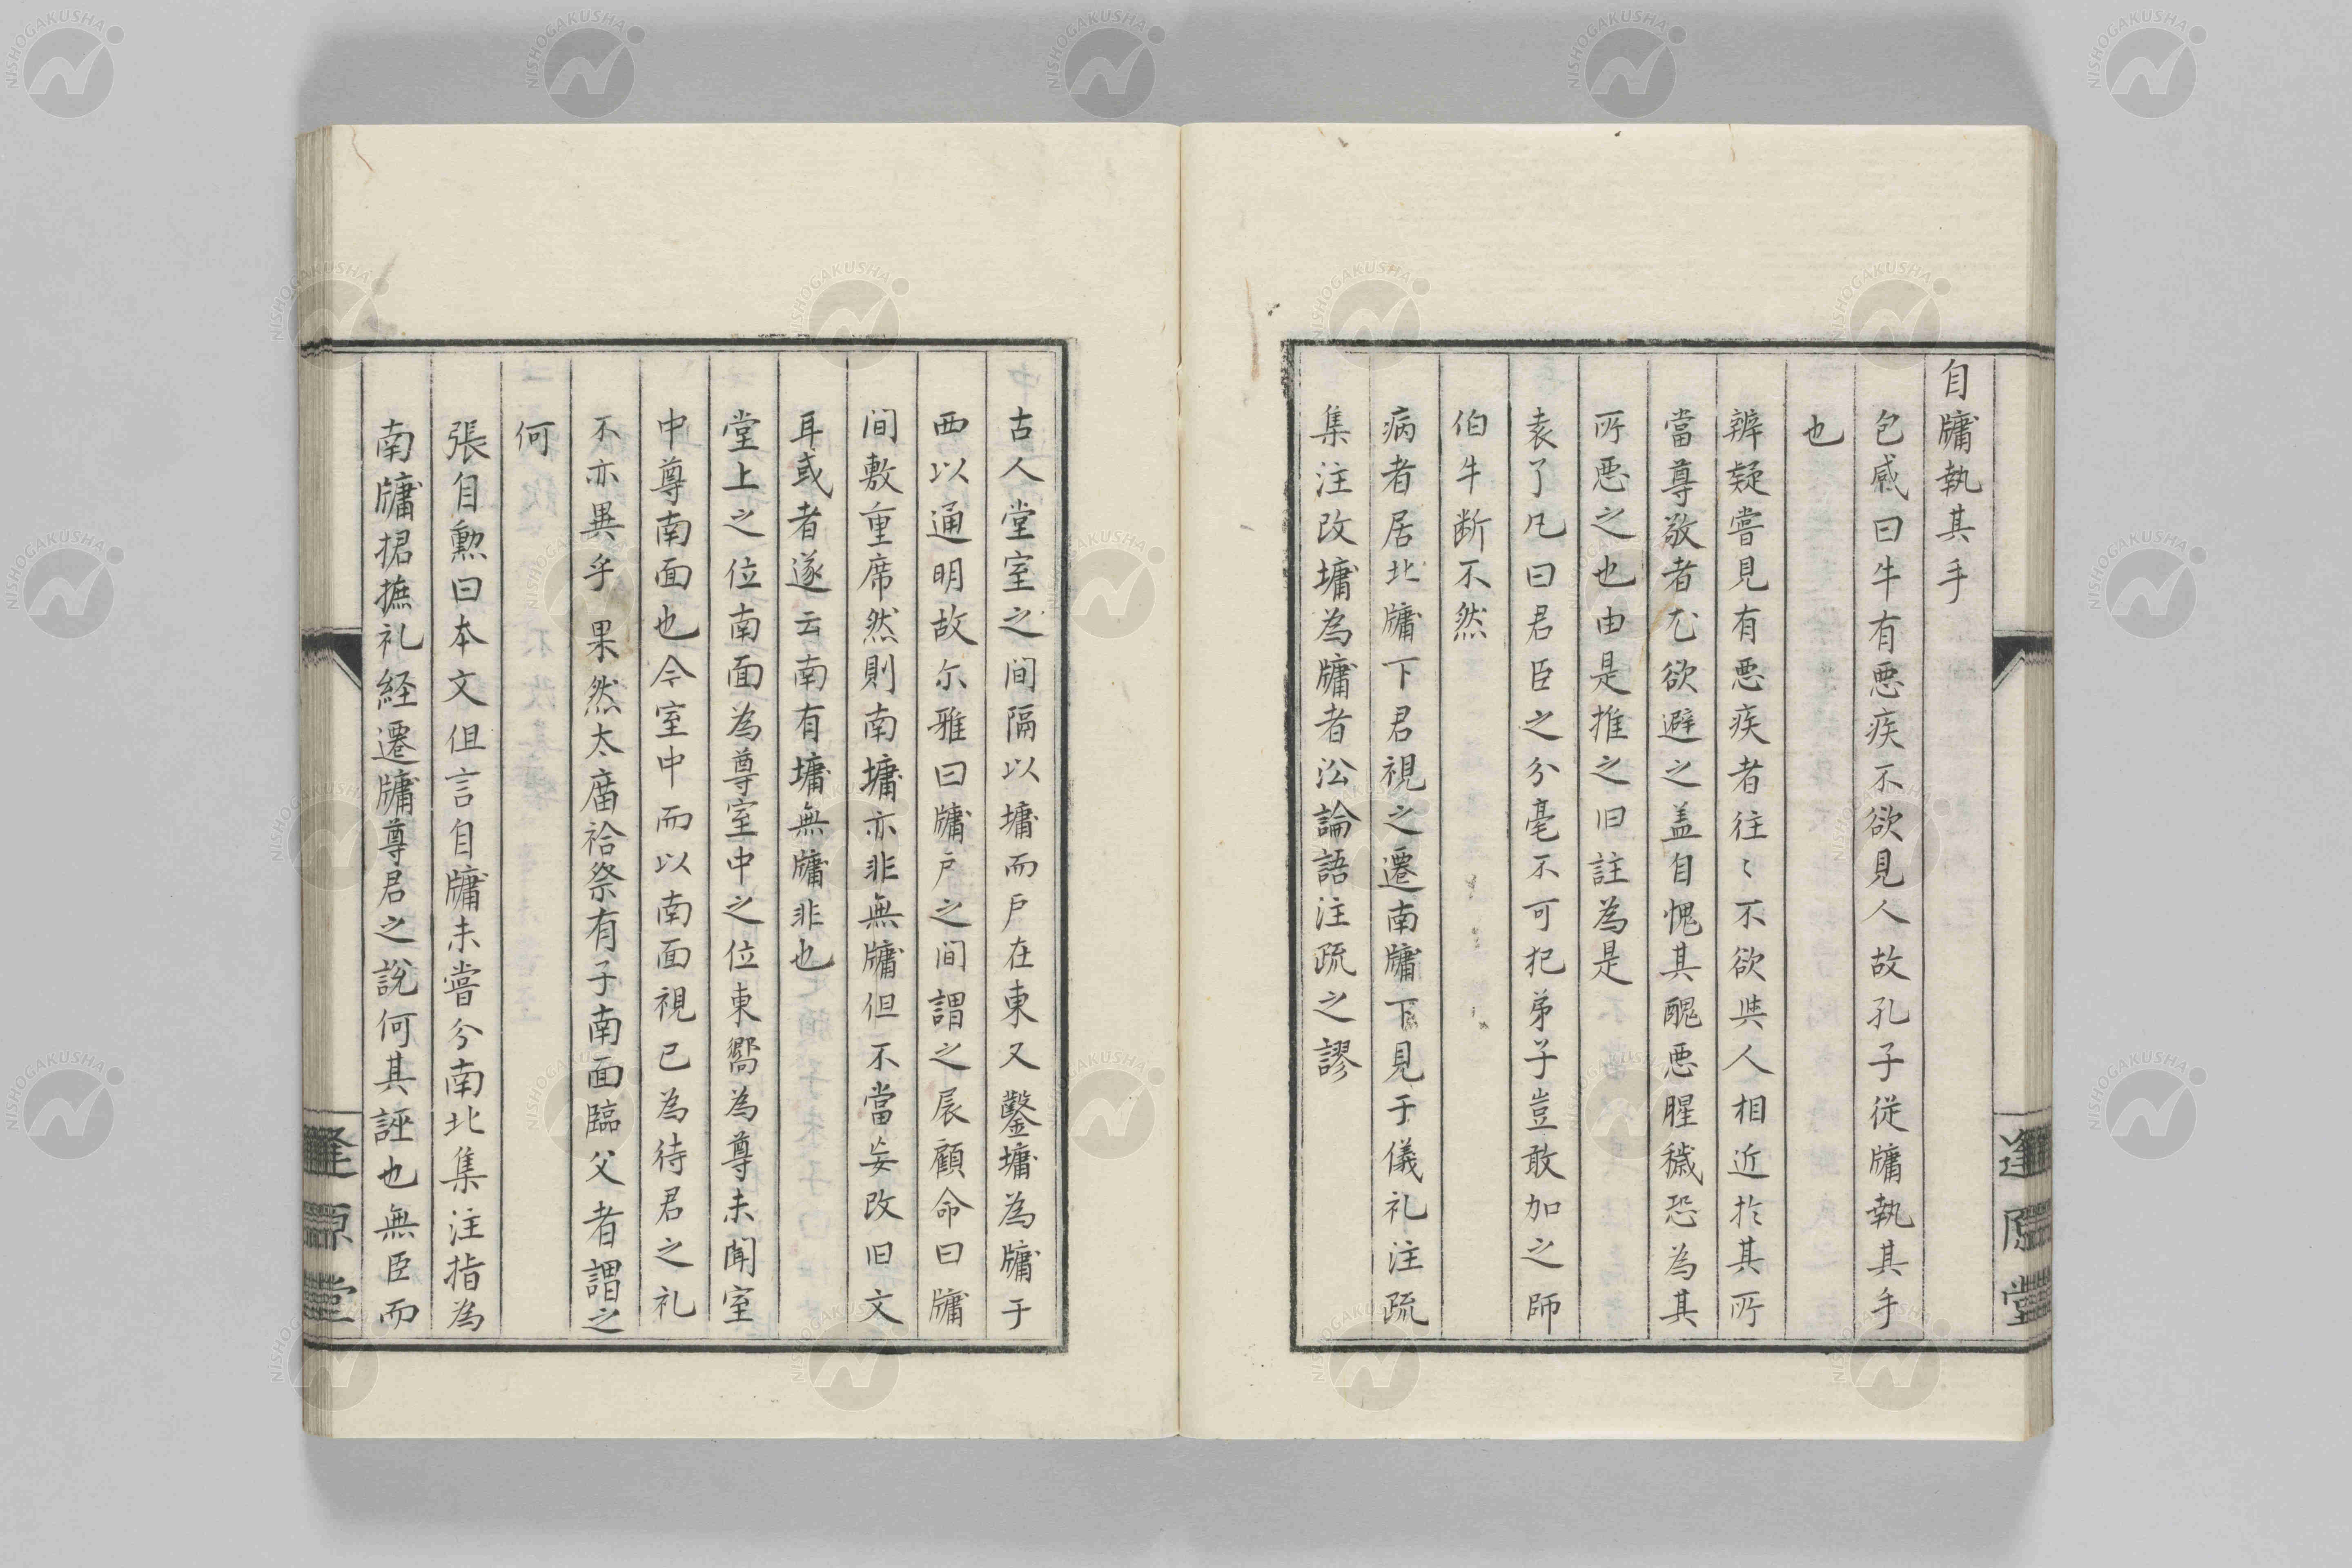 自牖執其手
包咸曰牛有悪疾不欲見人故孔子從牖執其手
也
辨疑嘗見有悪疾者往〻不欲與人相近於其所
當尊敬者尤欲避之盖自愧其醜悪腥穢恐為其
所悪之也由是推之旧註為是
袁了凡曰君臣之分毫不可犯弟子豈敢加之師
伯牛断不然
病者居北牖下君視之遷南牖下見于儀礼注疏
集注改墉為牖者㳂論語注疏之謬
逢原堂
古人堂室之间隔以墉而戶在東又鑿墉為牖于
西以通明故尓雅曰牖戶之间謂之扆顧命曰牖
间敷重席然則南墉亦非無牖但不當妄改旧文
耳或者遂云南有墉無牖非也
堂上之位南面為尊室中之位東嚮為尊未聞室
中尊南面也今室中而以南面視已為待君之礼
不亦異乎果然太庿祫祭有子南面臨父者謂之
何
張自勲曰本文但言自牖未嘗分南北集注指為
南牖捃摭礼経遷牖尊君之說何其誣也無臣而
逢原堂
NISHOGAKUSHA